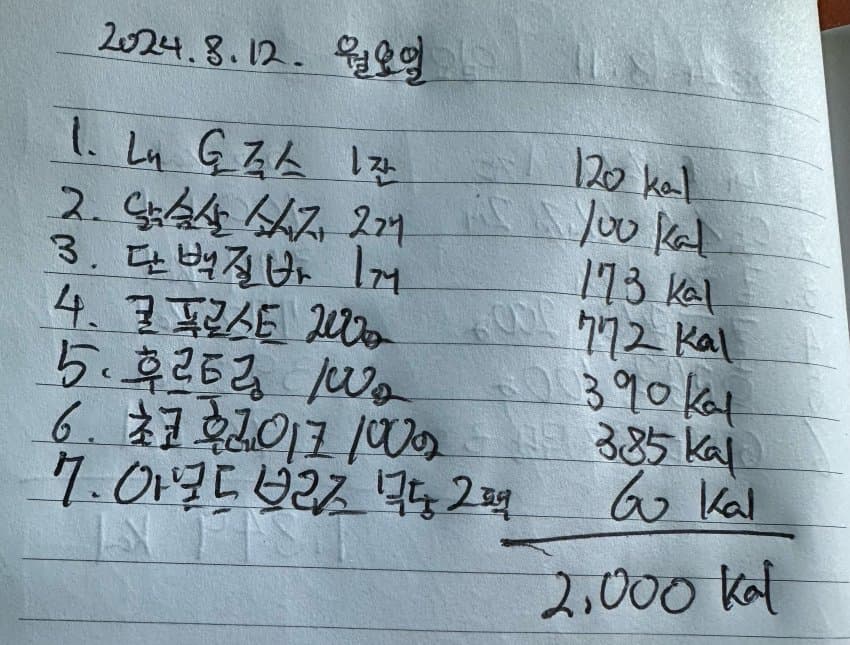 2024.8.12. 월요일
1. 1잔 120 Kal
2. 닭가슴살 소시지 2개 100 Kal
3. 단백질바 1개 173 Kal
4. 콘푸로스트 200g 772 Kal
5. 후르트링 100g 390 Kal
6. 초코 후레이크 100g 385 Kal
7. 아몬드 브리즈 무당 2팩 60 Kal
2,000 Kal